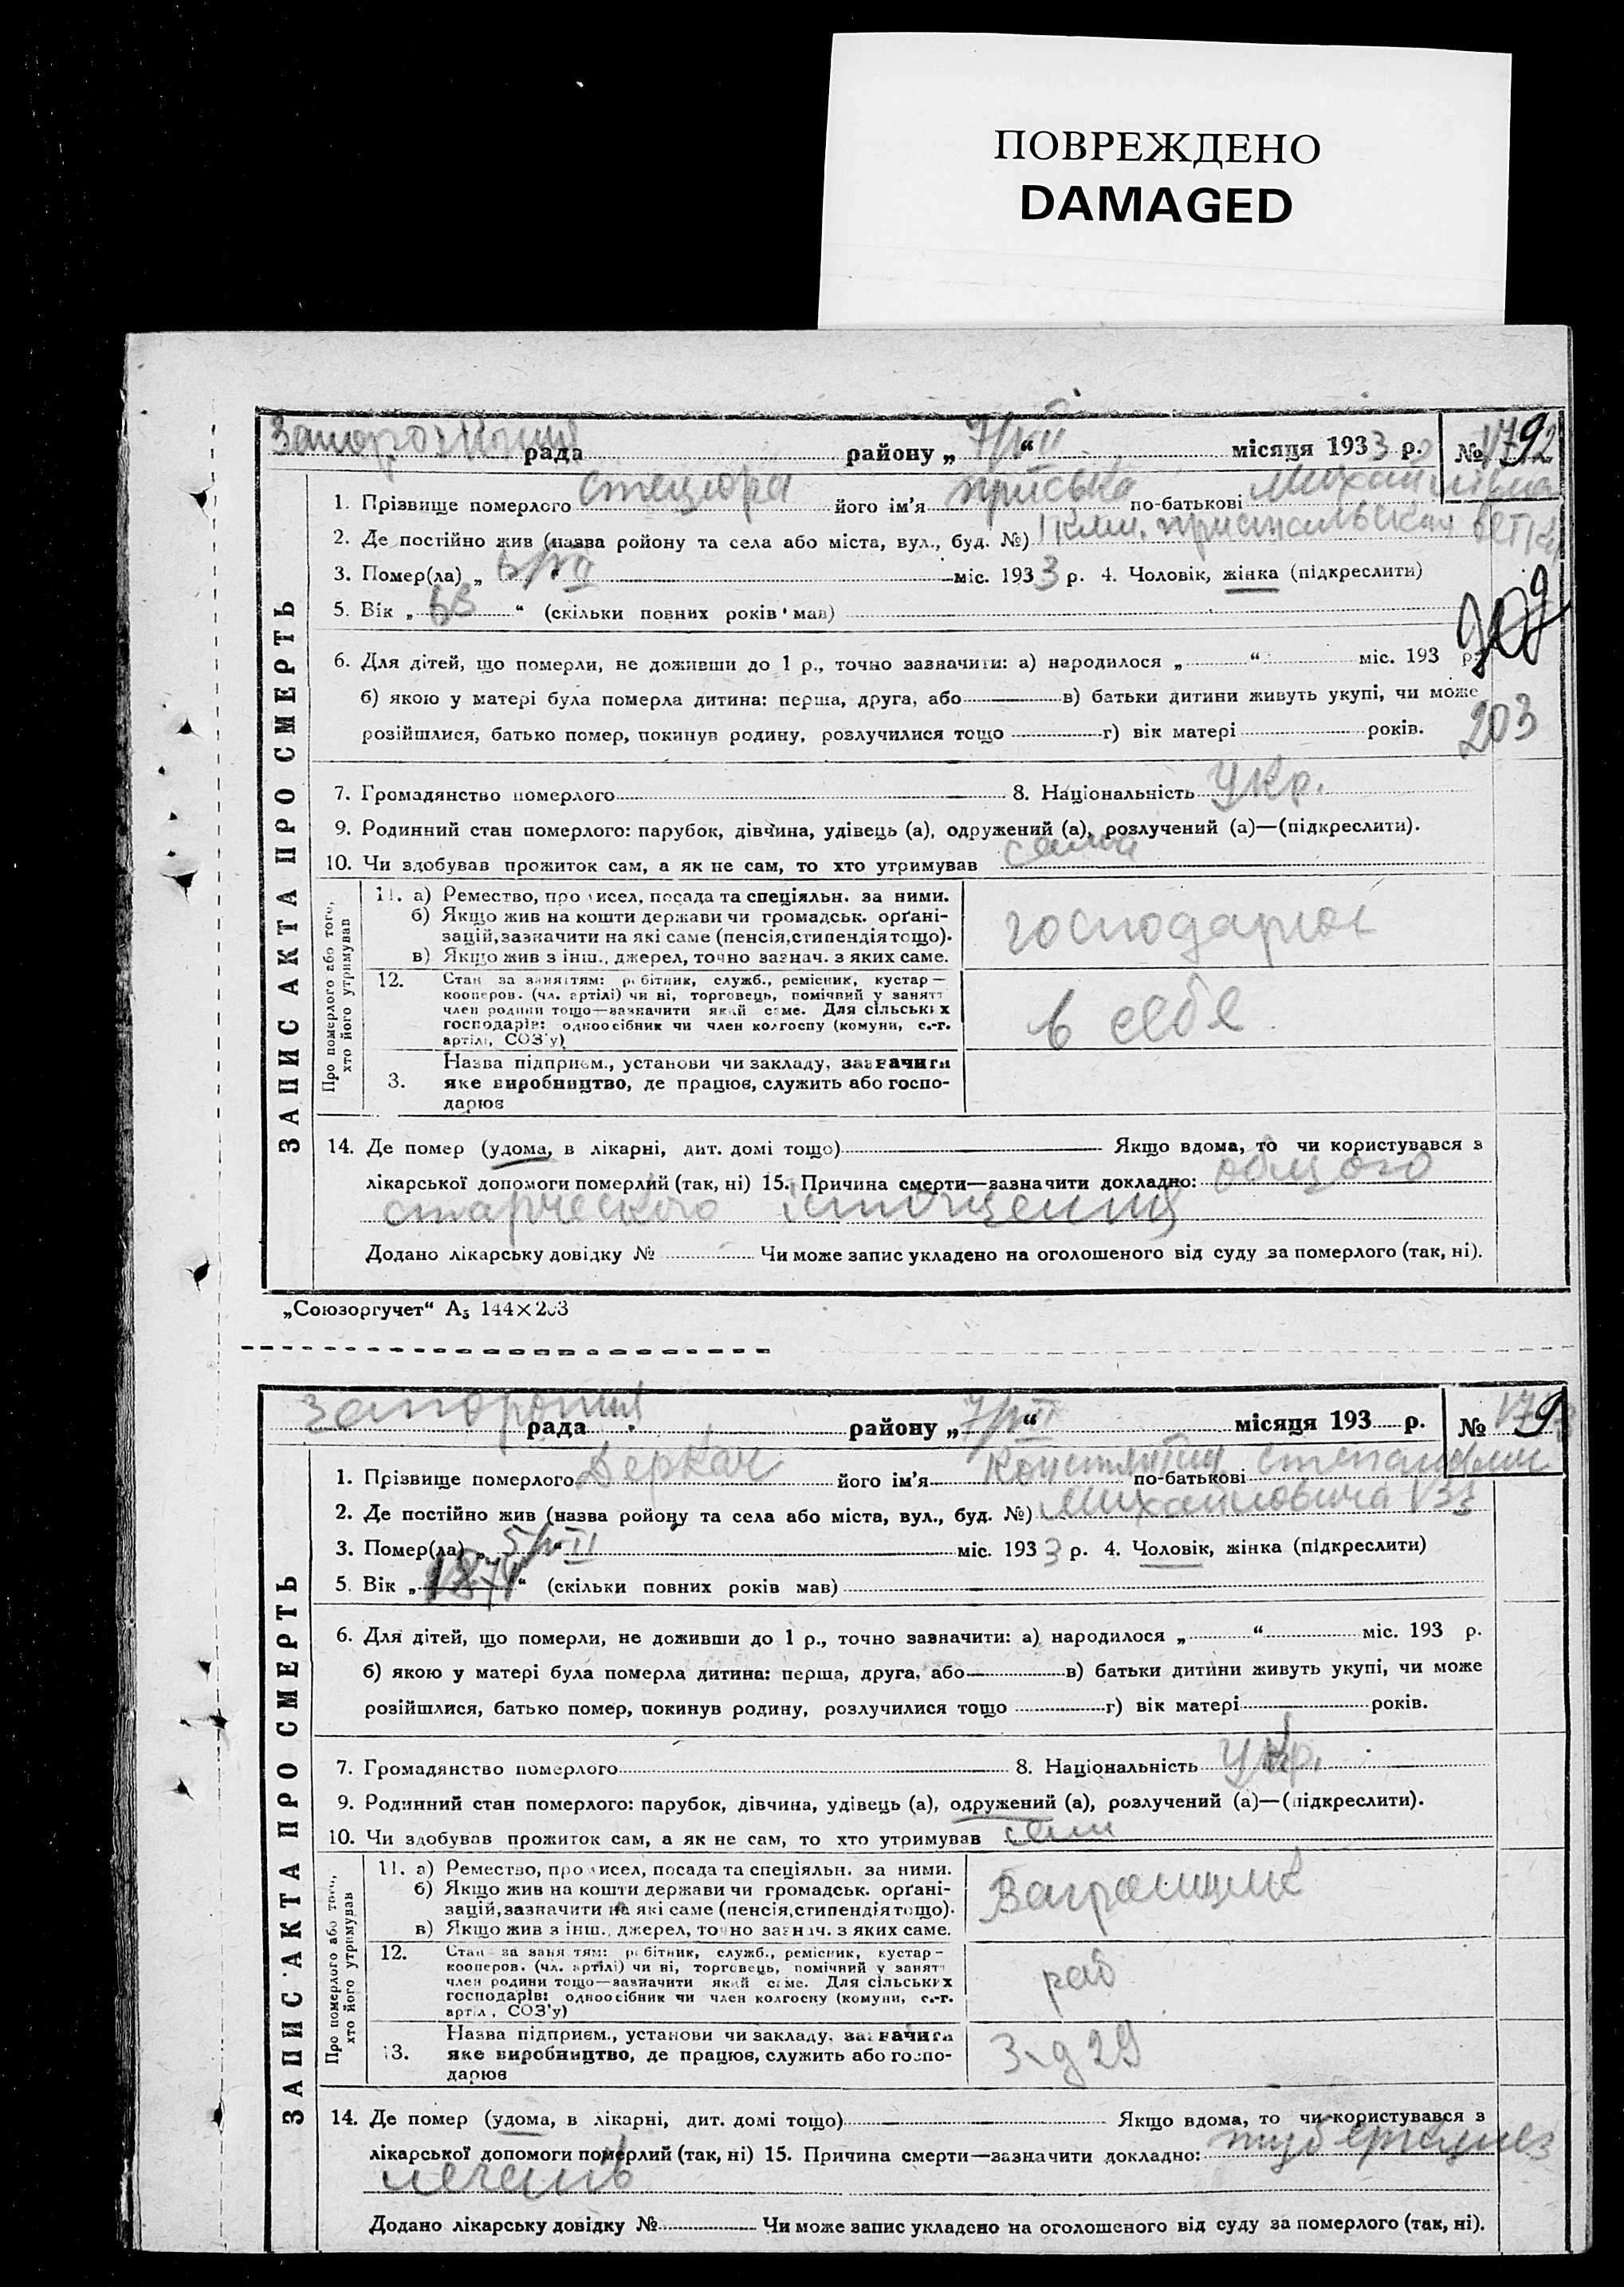 ПОВРЕЖДЕНО
DAMAGED
рада район у „ 7/VII “ місяця 1933 р. № 1792
1. Прізвище померлого Стецюра його ім’я Приська по-батькові Михайлівна
2. Де постійно жив (назва ройону та села або міста, вул., буд. №)
3. Помер(ла) „ “ міс. 1933 р. 4. Чоловік, жінка (підкреслити)
5. Вік „ “ (скільки повних років мав)
209
6. Для дітей, що померли, не доживши до 1 р., точно зазначити: а) народилося „ “ міс. 193 р.
б) якою у матері була померла дитина: перша, друга, або в) батьки дитини живуть укупі, чи може
203
розійшлися, батько помер, покинув родину, розлучилися тощо г) вік матері років.
7. Громадянство померлого 8. Національність Укр.
9. Родинний стан померлого: парубок, дівчина, удівець (а), одружений (а), розлучений (а)—(підкреслити).
10. Чи здобував прожиток сам, а як не сам, то хто утримував сама
ЗАПИС АКТА ПРО СМЕРТЬ
Про померлого або того, хто його утримував
11. а) Ремество, промисел, посада та спеціяльн. за ними.
б) Якщо жив на кошти держави чи громадськ. орґані-
зацій, зазначити на які саме (пенсія, стипендія тощо).
в) Якщо жив з інш. джерел, точно зазнач. з яких саме.
господарює
12. Стан за заняттям: робітник, служб., ремісник, кустар—
кооперов. (чл. артілі) чи ні, торговець, помічний у занятт
член родини тощо—зазначити який саме. Для сільських
господарів: одноосібник чи член колгоспу (комуни, с.-г.
артілі, СОЗ’у)
в себе
Назва підприєм., установи чи закладу, зазначити
3. яке виробництво, де працює, служить або госпо-
дарює
14. Де помер (удома, в лікарні, дит. домі тощо) Якщо вдома, то чи користувався з
лікарської допомоги померлий (так, ні) 15. Причина смерти—зазначити докладно: общого
старческого істощения
Додано лікарську довідку № Чи може запис укладено на оголошеного від суду за померлого (так, ні).
„Союзоргучет“ А5 144×203
рада району „ 7/VII “ місяця 193 р. № 1793
1. Прізвище померлого Деркач його ім’я Константин по-батькові Степанович
2. Де постійно жив (назва ройону та села або міста, вул., буд. №) Михайловича 133
3. Помер(ла) „ 5/VII “ міс. 1933 р. 4. Чоловік, жінка (підкреслити)
5. Вік „ “ (скільки повних років мав)
6. Для дітей, що померли, не доживши до 1 р., точно зазначити: а) народилося „ “ міс. 193 р.
б) якою у матері була померла дитина: перша, друга, або в) батьки дитини живуть укупі, чи може
розійшлися, батько помер, покинув родину, розлучилися тощо г) вік матері років.
7. Громадянство померлого 8. Національність Укр.
9. Родинний стан померлого: парубок, дівчина, удівець (а), одружений (а), розлучений (а)—(підкреслити).
10. Чи здобував прожиток сам, а як не сам, то хто утримував сам
ЗАПИС АКТА ПРО СМЕРТЬ
Про померлого або того, хто його утримував
11. а) Ремество, промисел, посада та спеціяльн. за ними.
б) Якщо жив на кошти держави чи громадськ. орґані-
зацій, зазначити на які саме (пенсія, стипендія тощо).
в) Якщо жив з інш. джерел, точно зазнач. з яких саме.
Вагранщик
12. Стан за заняттям: робітник, служб., ремісник, кустар—
кооперов. (чл. артілі) чи ні, торговець, помічний у занятт
член родини тощо—зазначити який саме. Для сільських
господарів: одноосібник чи член колгоспу (комуни, с.-г.
артіл, СОЗ’у)
роб
Назва підприєм., установи чи закладу, зазначити
13. яке виробництво, де працює, служить або госпо-
дарює
З-д 29
14. Де помер (удома, в лікарні, дит. домі тощо) Якщо вдома, то чи користувався з
лікарської допомоги померлий (так, ні) 15. Причина смерти—зазначити докладно: туберкулез
Додано лікарську довідку № Чи може запис укладено на оголошеного від суду за померлого (так, ні).